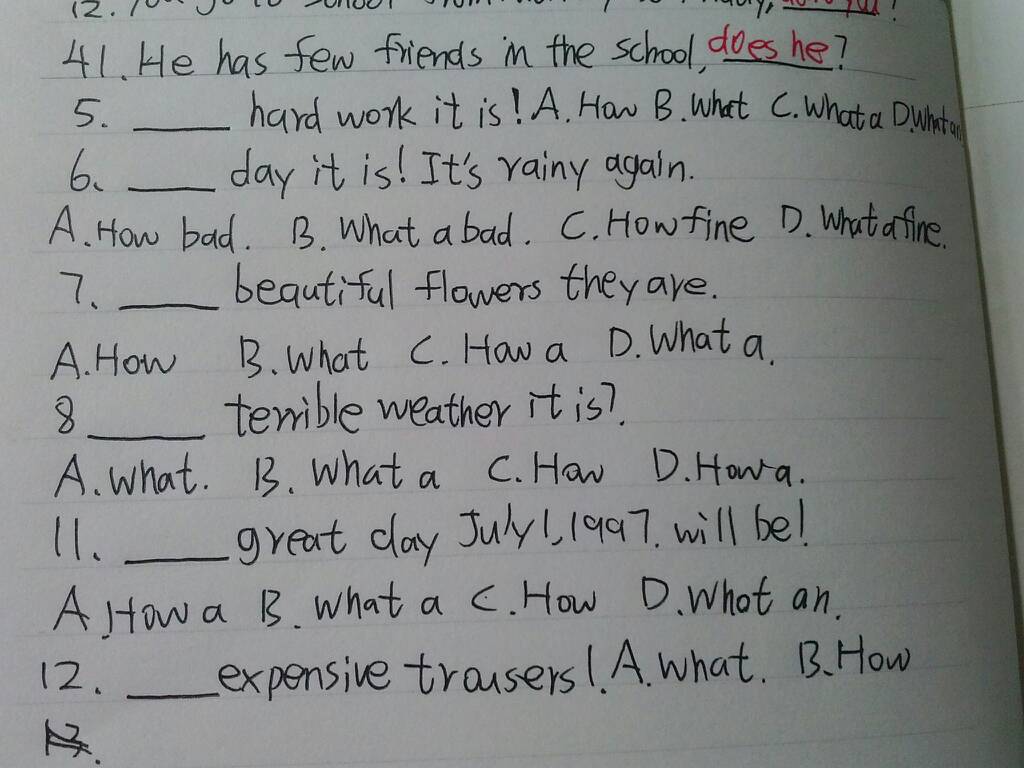 12. You go to school from
41. He has few friends in the school, does he?
5. ____ hard work it is! A. How B. What C. What a D. What an
6、 ____ day it is! It's rainy again.
A. How bad. B. What a bad. C. How fine D. What a fine.
7、 ____ beautiful flowers they are.
A. How B. What C. How a D. What a.
8 ____ terrible weather it is?.
A. What. B. What a C. How D. How a.
11、 ____ great day July 1, 1997. will be!
A. How a B. What a C. How D. Whot an.
12. ____ expensive trousers!. A. What. B. How